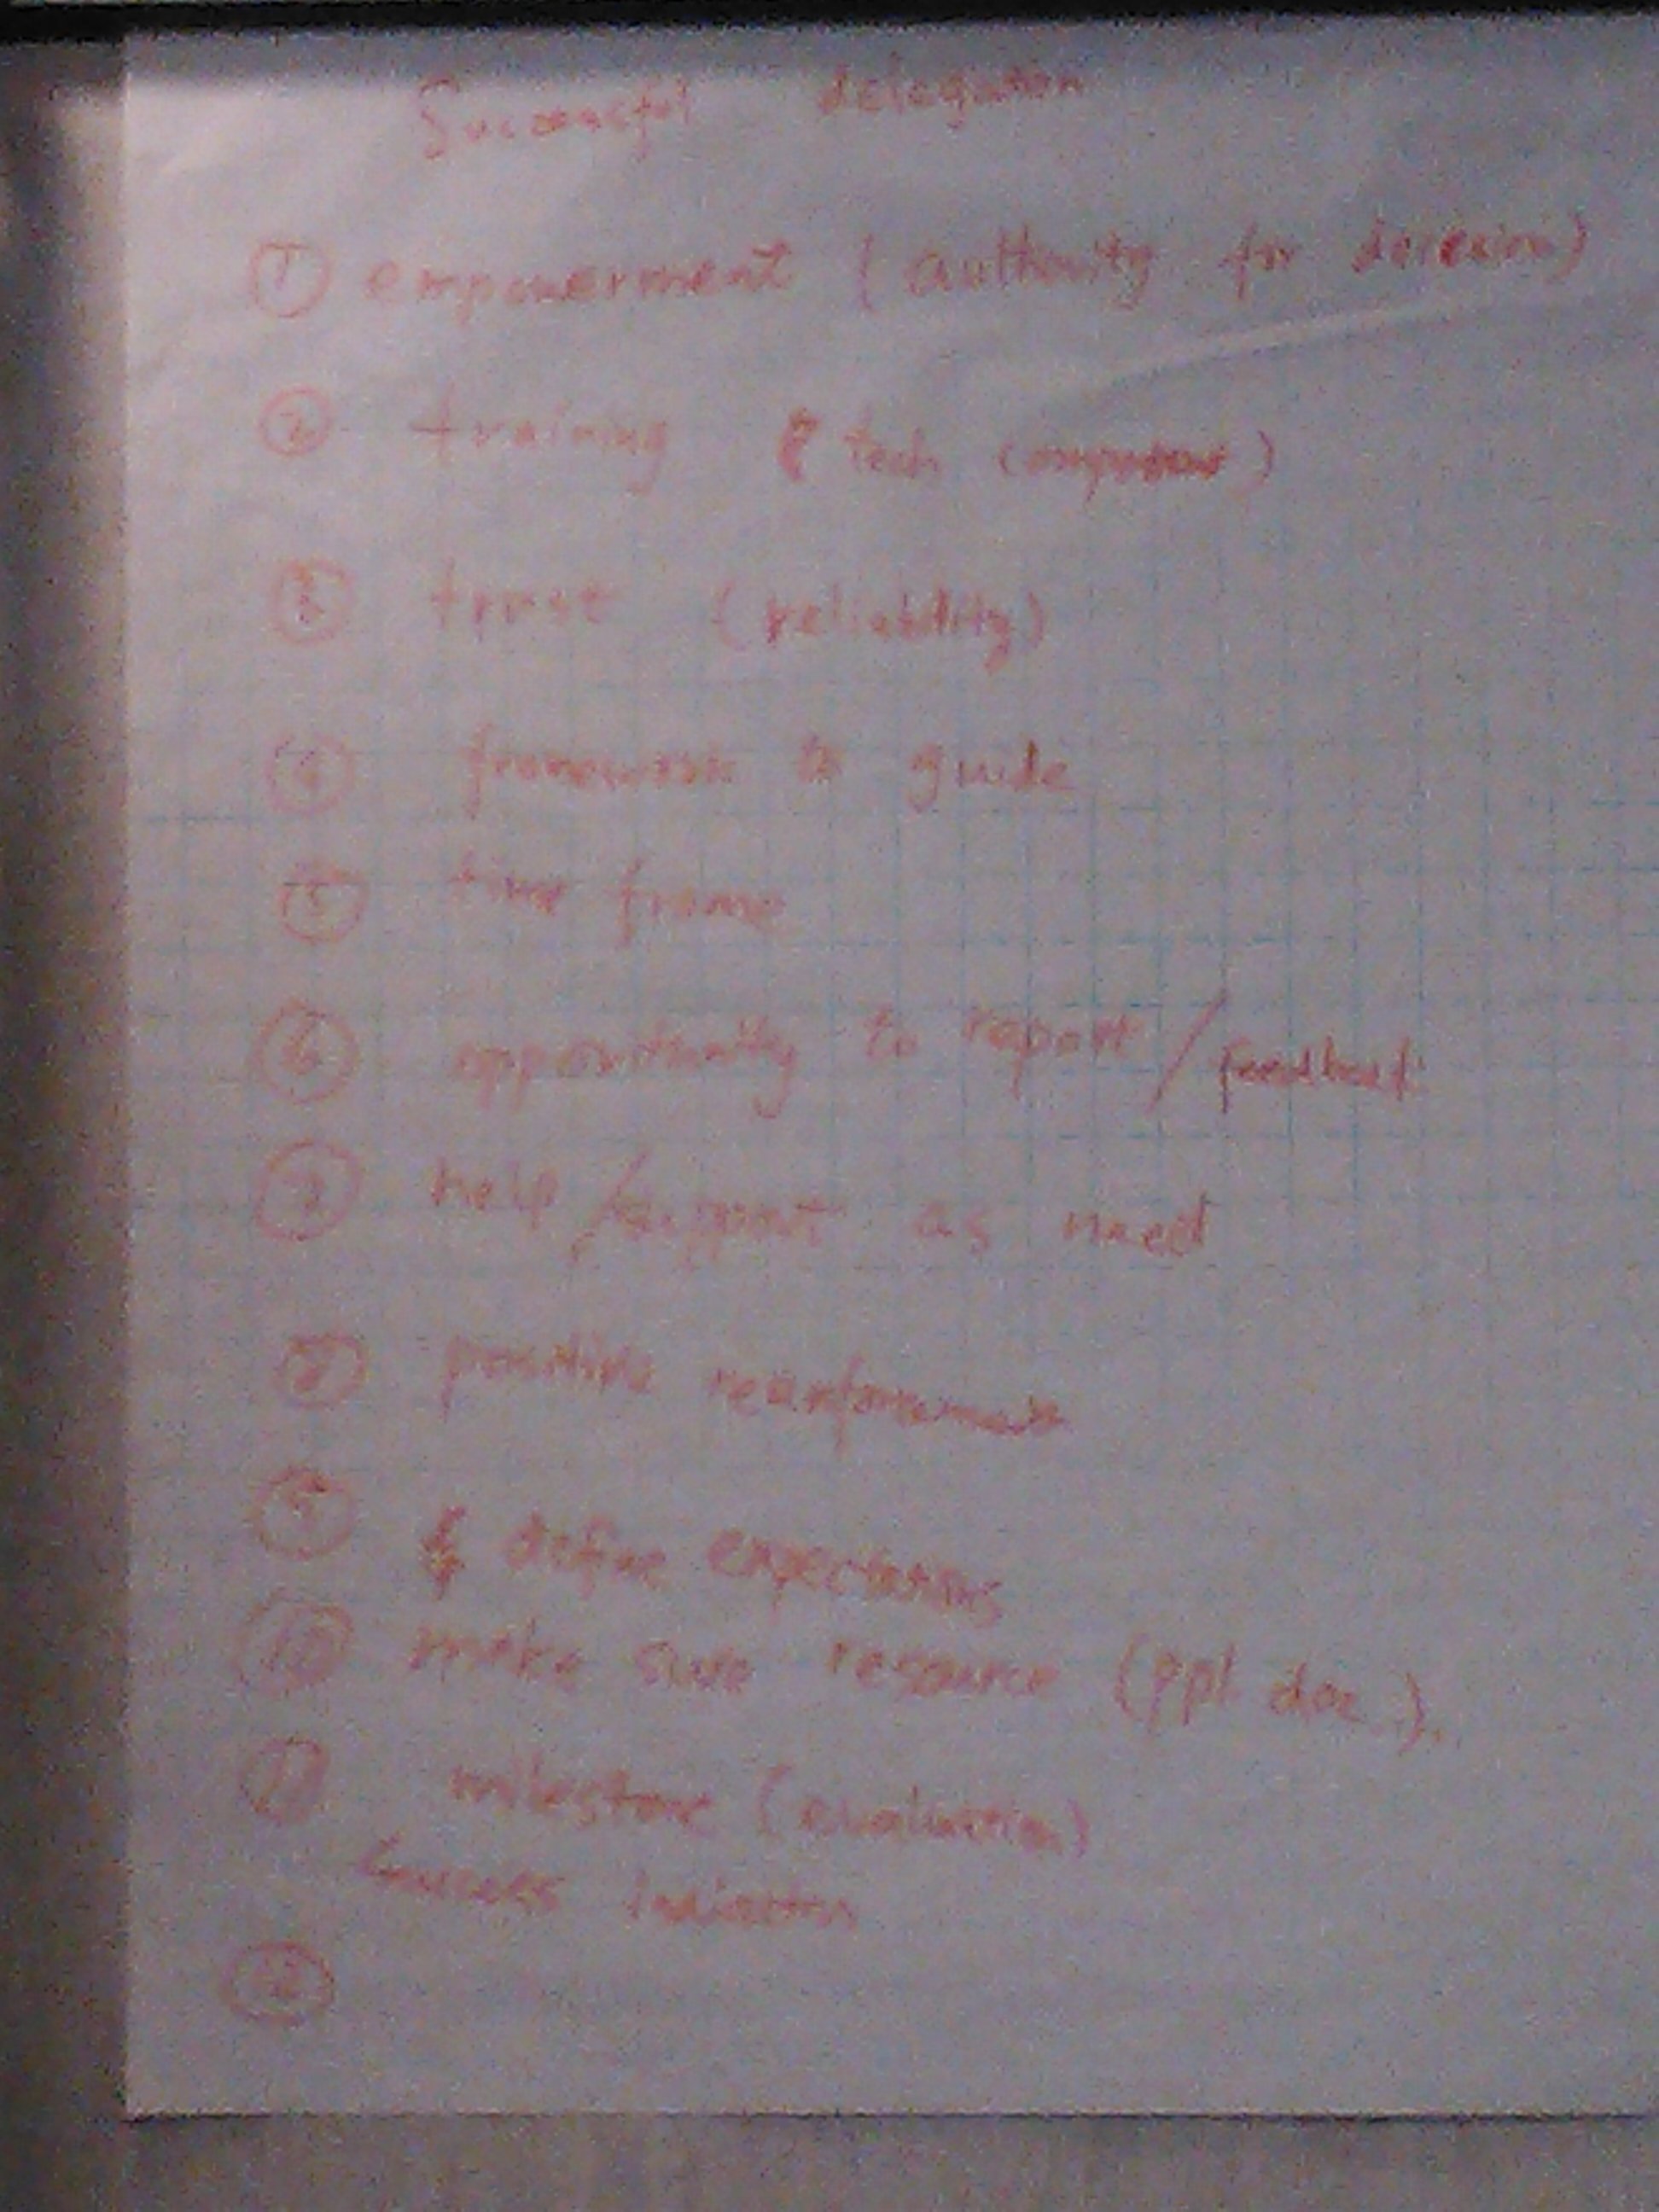 Successful delegation
① empowerment (authority for decision)
② training & tech
③ trust (reliability)
④ framework to guide
⑤ time frame
⑥ opportunity to report / feedback
⑦ help / support as need
⑧ positive
⑨ define expectations
⑩ make sure resource (ppl. doc.).
⑪ milestone (evaluation)
Success
⑫